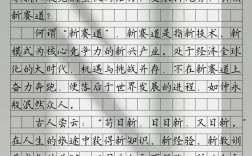 新赛道?
何谓"新赛道",新赛道是指新技术、新
模式为核心竞争力的新兴产业。处于经济全球
化的大时代,机遇与挑战并存,不在新赛道上
奋力奔跑,使落后于世界发展的进程,如仲永
般泯然众人。
古人尝云:"苟日新、日日新、又日新。"
在人生的旅途中获得新知识、新经验、新教训